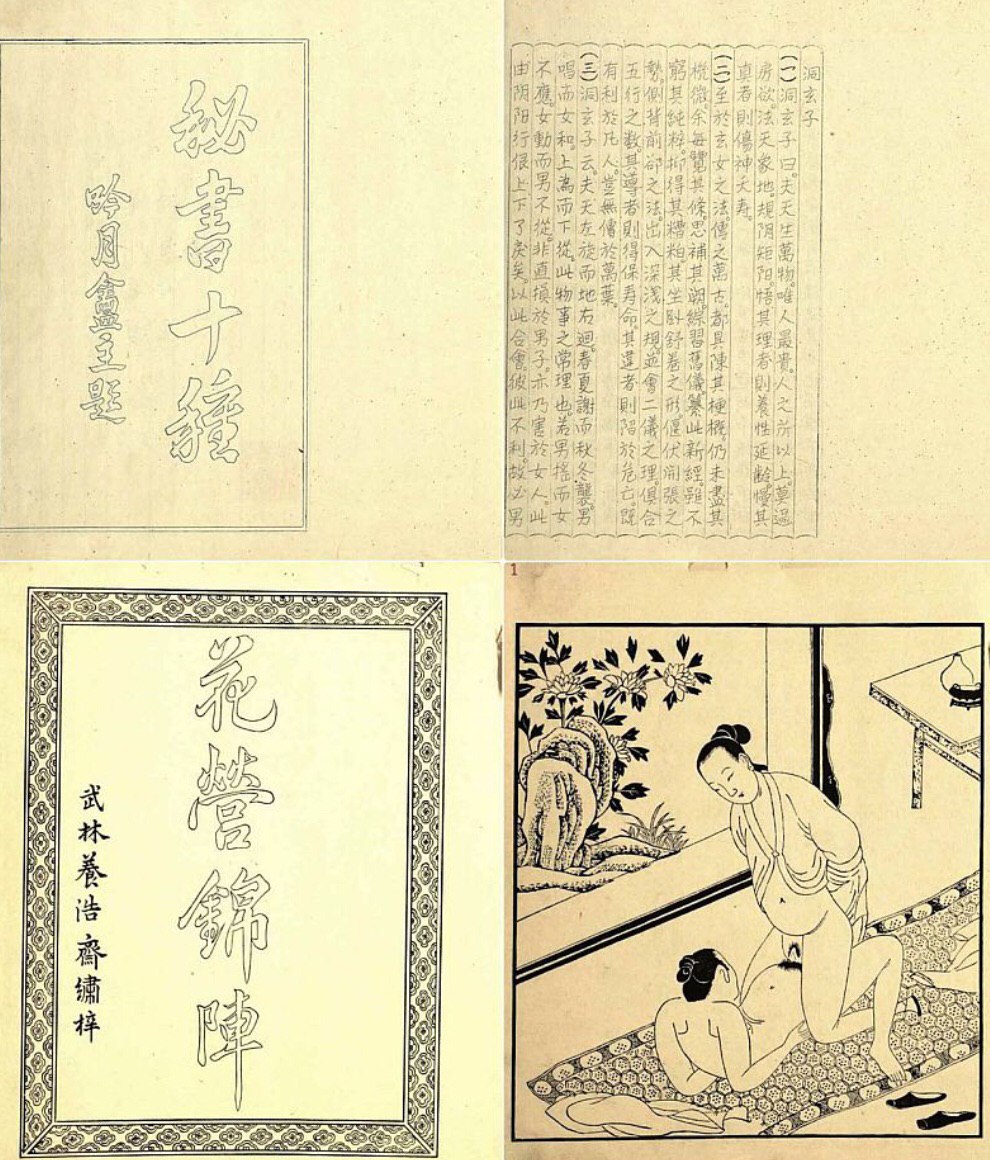 秘書十種
吟月盦主題
洞玄子
(一)洞玄子曰。夫天生萬物。唯人最貴。人之所以上。莫過
房欲。法天象地。規阴矩阳。悟其理者則養性延齡。慢其
真者則傷神夭寿。
(二)至於玄女之法。傳之萬古。都具陳其梗概。仍未盡其
機微。余每覽其條。思補其闕。綜習舊儀。纂此新經。雖不
窮其純粹。抑得其糟粕。其坐卧舒卷之形。偃伏開張之
勢。側背前卻之法。出入深淺之規。並會二儀之理。俱合
五行之数。其導者則得保寿命。其違者則陷於危亡。既
有利於凡人。豈無傳於萬葉。
(三)洞玄子云。夫天左旋而地右迴。春夏謝而秋冬襲。男
唱而女和。上為而下從。此物事之常理也。若男搖而女
不應。女動而男不從。非直損於男子。亦乃害於女人。此
由阴阳行佷。上下了戾矣。以此合會。彼此不利。故必男
花營錦陣
武林養浩齋繡梓
1